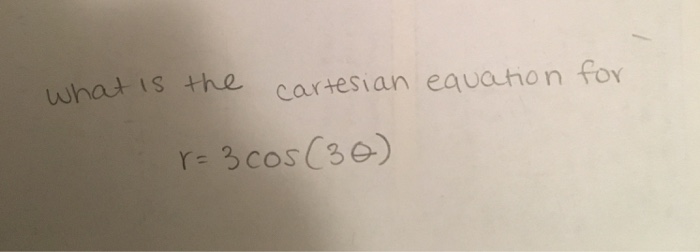 what is the cartesian equation for
r= 3cos(3θ)